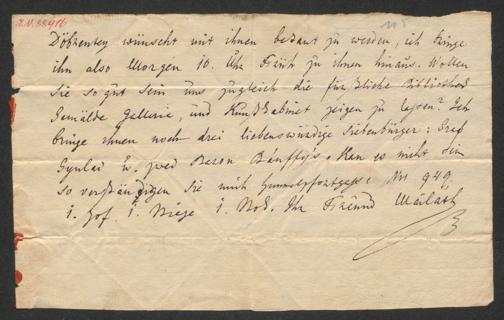 I.N. 33.916
Döbrentey wünscht mit ihnen bekant zu werden, ich bringe
ihn also Morgen 10. Uhr Früh zu ihnen hinaus. Wollen
Sie so gut sein uns zugleich die fürstliche Bibliothek
Gemälde Gallerie, und Kunstkabinet zeigen zu lassen? Ich
bringe ihnen noch drei liebenswürdige Siebenbürger: Graf
Gyulai u. zwei Baron Bánffy's. Kan es nicht sein
so verständigen Sie mich Nr. 949
1. Hof 1. Stiege 1. Stok. Ihr Freund Mailáth